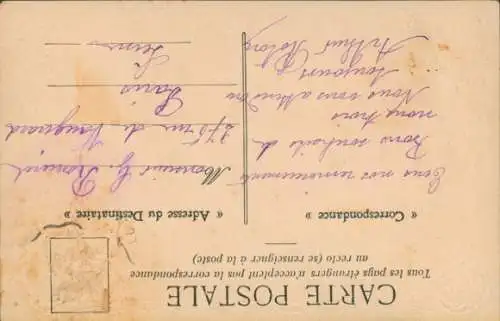 CARTE POSTALE
Tous les pays étrangers n'acceptent pas la correspondance
au recto (se renseigner à la poste)
« Correspondance »
« Adresse du Destinataire »
Tous nos remerciements
Bons souhaits de
nous trois
Nous vous attendons
Toujours
Arthur
Monsieur G.
275 rue de Vaugirard
Paris
Seine